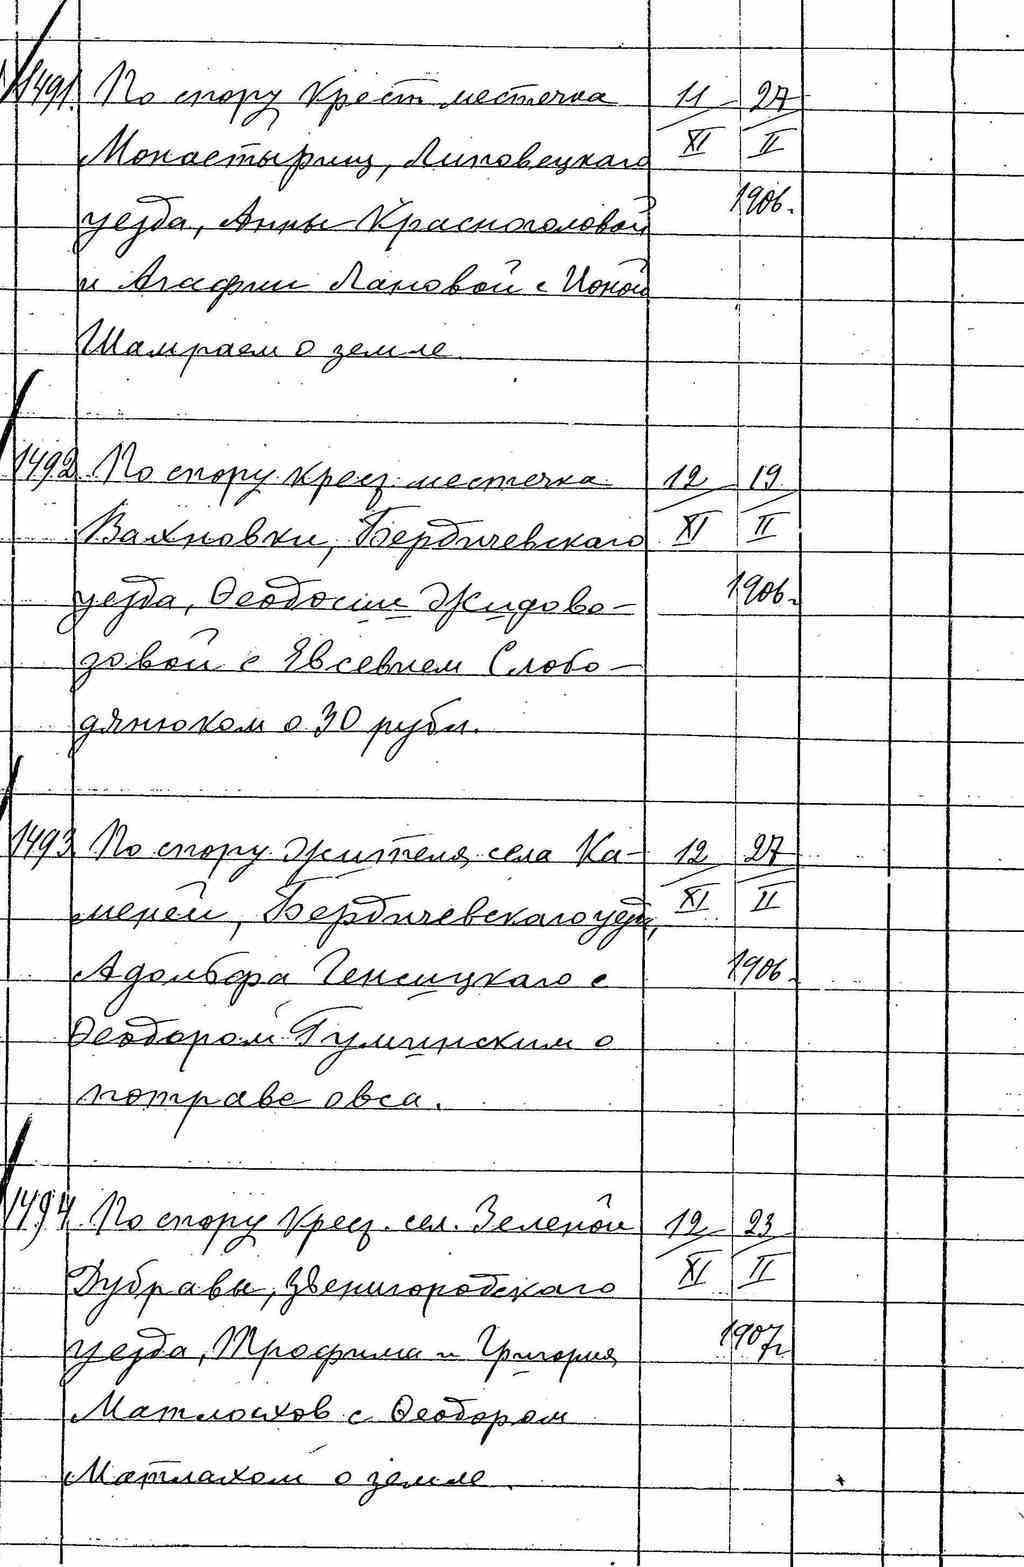 1491. По спору крест. местечка 11 27
Монастырищ, Липовецкаго XI II
уезда, Анны Красноголовой 1906.
и Агафии Лановой с Ионой
Шамраем о земле.
1492. По спору крест. местечка 12 19
Вахновки, Бердичевскаго XI II
уезда, Феодосии Жидово- 1906.
зовой с Евсевием Слобо-
дянюком о 30 рубл.
1493. По спору жителя села Ка- 12 27
меней, Бердичевскаго уезда, XI II
Адольфа Генсицкаго с 1906.
Феодором Гуминским о
потраве овса.
1494. По спору крест. сел. Зеленой 12 23
Дубравы, Звенигородскаго XI II
уезда, Трофима и Григория 1907г.
Матлахов с Феодором
Матлахом о земле.